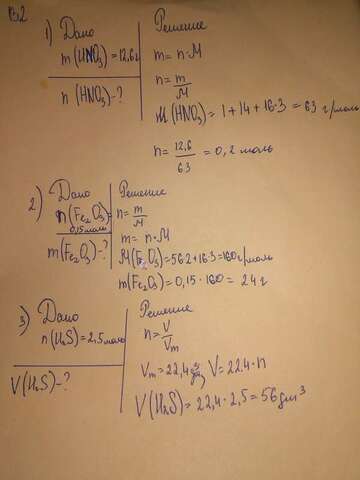 В2
1) Дано
m(HNO₃)=12,6г
n(HNO₃)-?
Решение
m= n·M
n= m/M
M(HNO₃)= 1+14+16·3 = 63 г/моль
n= 12,6/63 = 0,2 моль
2) Дано
n(Fe₂O₃)=
0,15моль
m(Fe₂O₃)-?
Решение
n= m/M
m= n·M
M(Fe₂O₃)=56·2+16·3=160г/моль
m(Fe₂O₃)= 0,15·160= 24г
3) Дано
n(H₂S)=2,5моль
V(H₂S)-?
Решение
n= V/Vm
Vm=22,4 V= 22.4·n
V(H₂S)= 22,4·2,5=56дm³